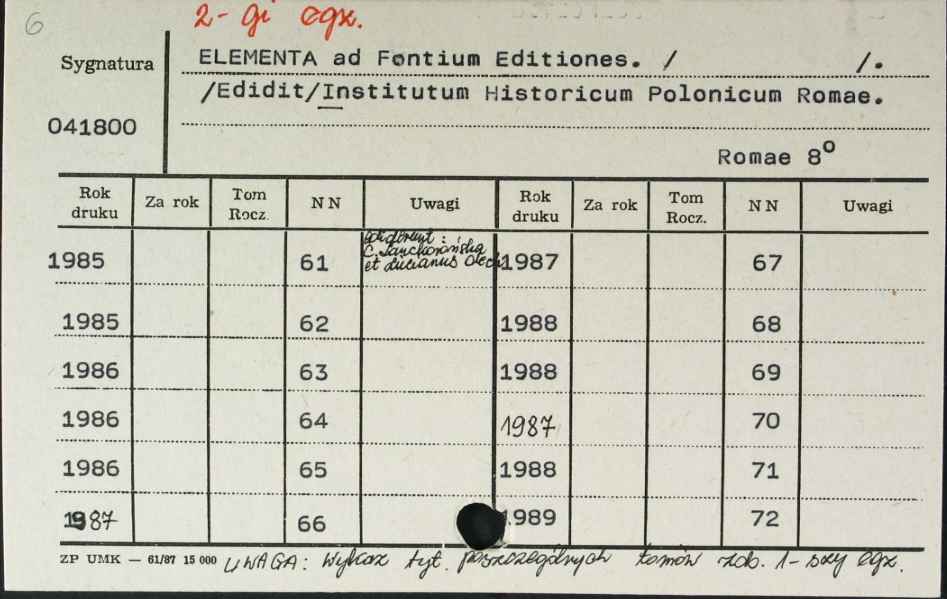 6
2-gi egz.
Sygnatura
ELEMENTA ad Fontium Editiones. / /.
/Edidit/Institutum Historicum Polonicum Romae.
041800
Romae 8o
Rok druku Za rok Tom Rocz. NN Uwagi Rok druku Za rok Tom Rocz. NN Uwagi
ediderunt :
C. Lanckorońska
et Lucianus Olech
1985 61 1987 67
1985 62 1988 68
1986 63 1988 69
1986 64 1987 70
1986 65 1988 71
1987 66 1989 72
ZP UMK — 61/87 15 000 UWAGA: Wykaz tyt. poszczególnych tomów zob. 1-szy egz.